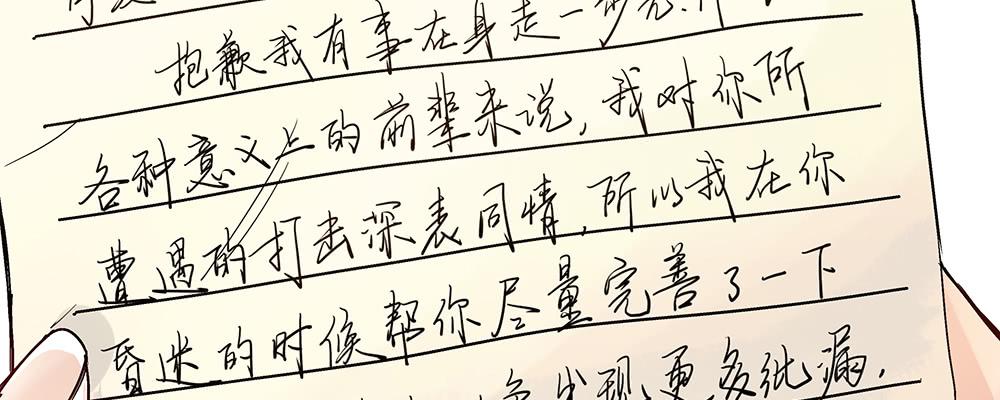 抱歉我有事在身走一步先
各种意义上的前辈来说,我对你所
曹遇的打击深表同情,所以我在你
昏迷的时候帮你尽量完善了一下
发现更多纰漏.